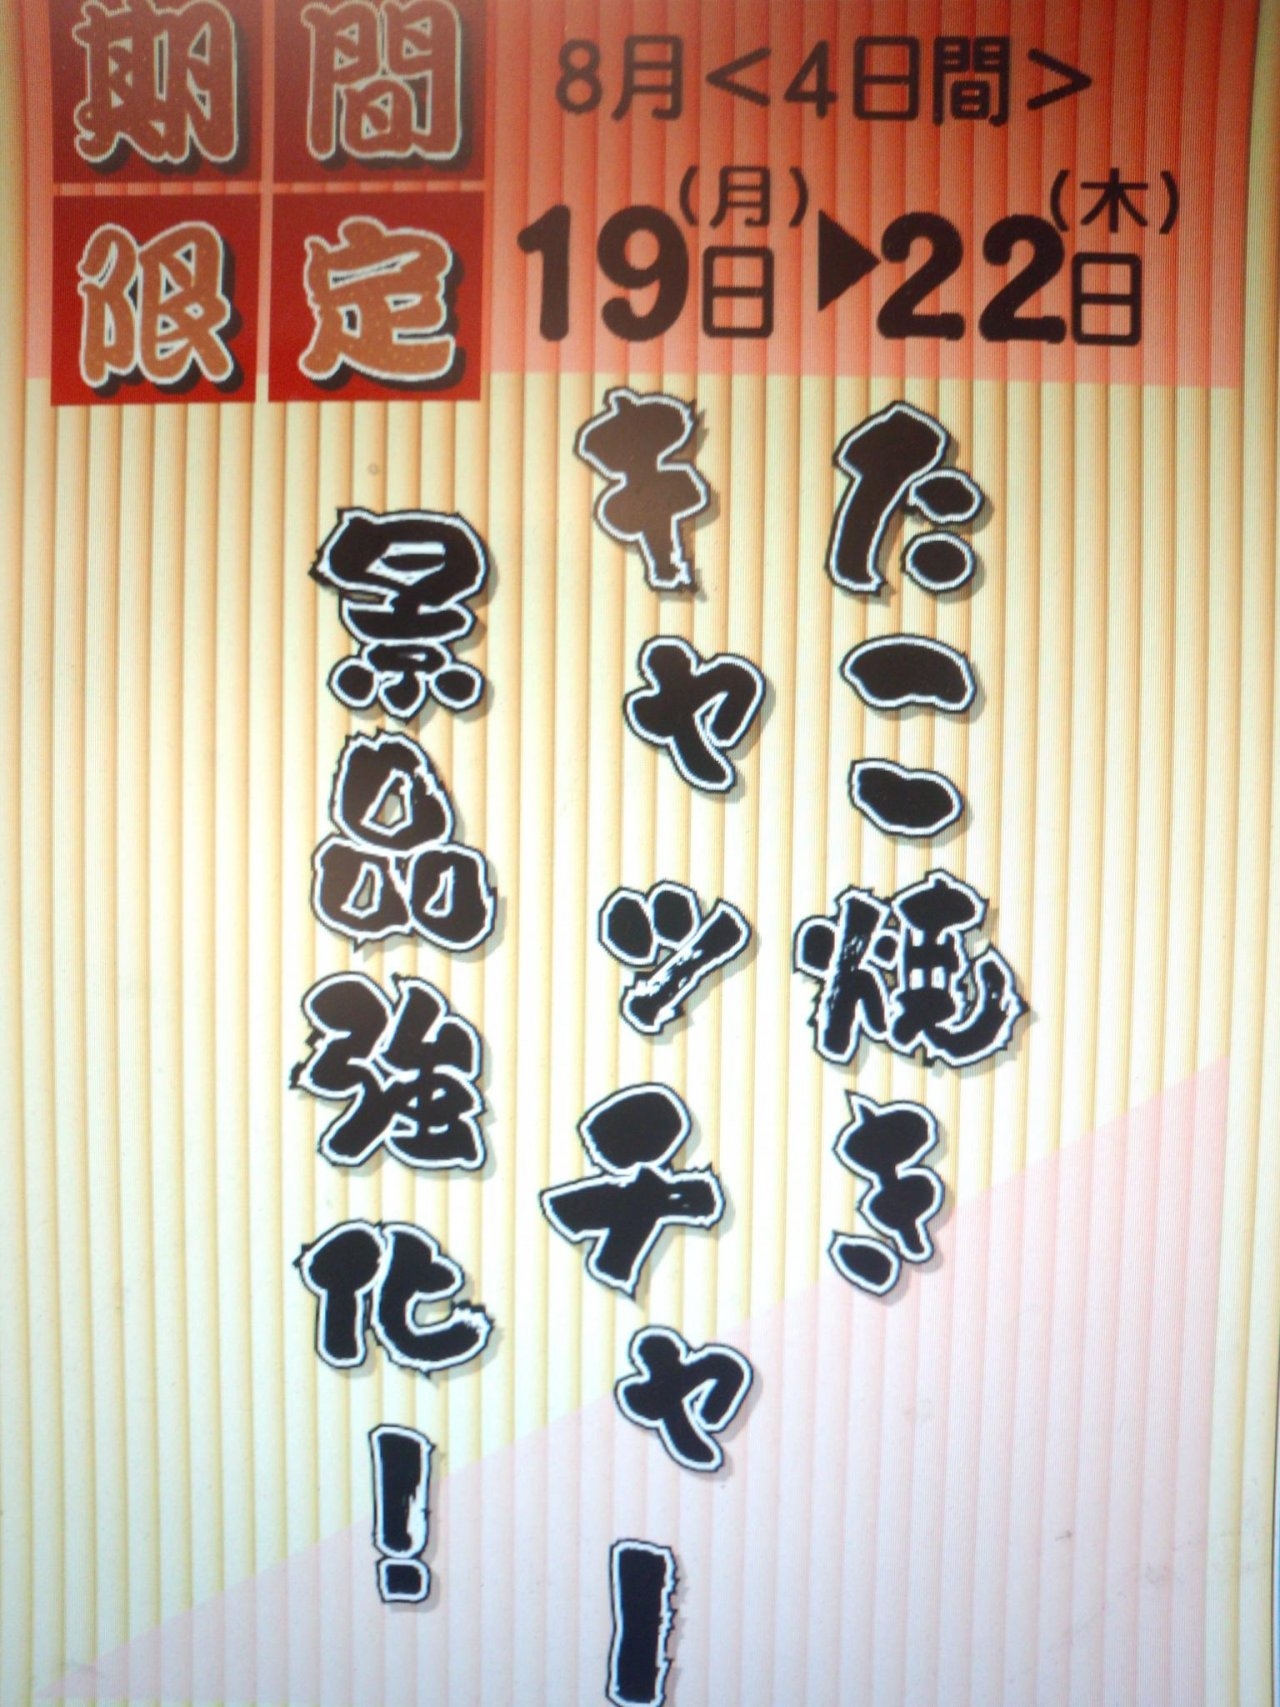 期間
限定
8月<4日間>
19日(月)▶22日(木)
たこ焼き
キャッチャー
景品強化!